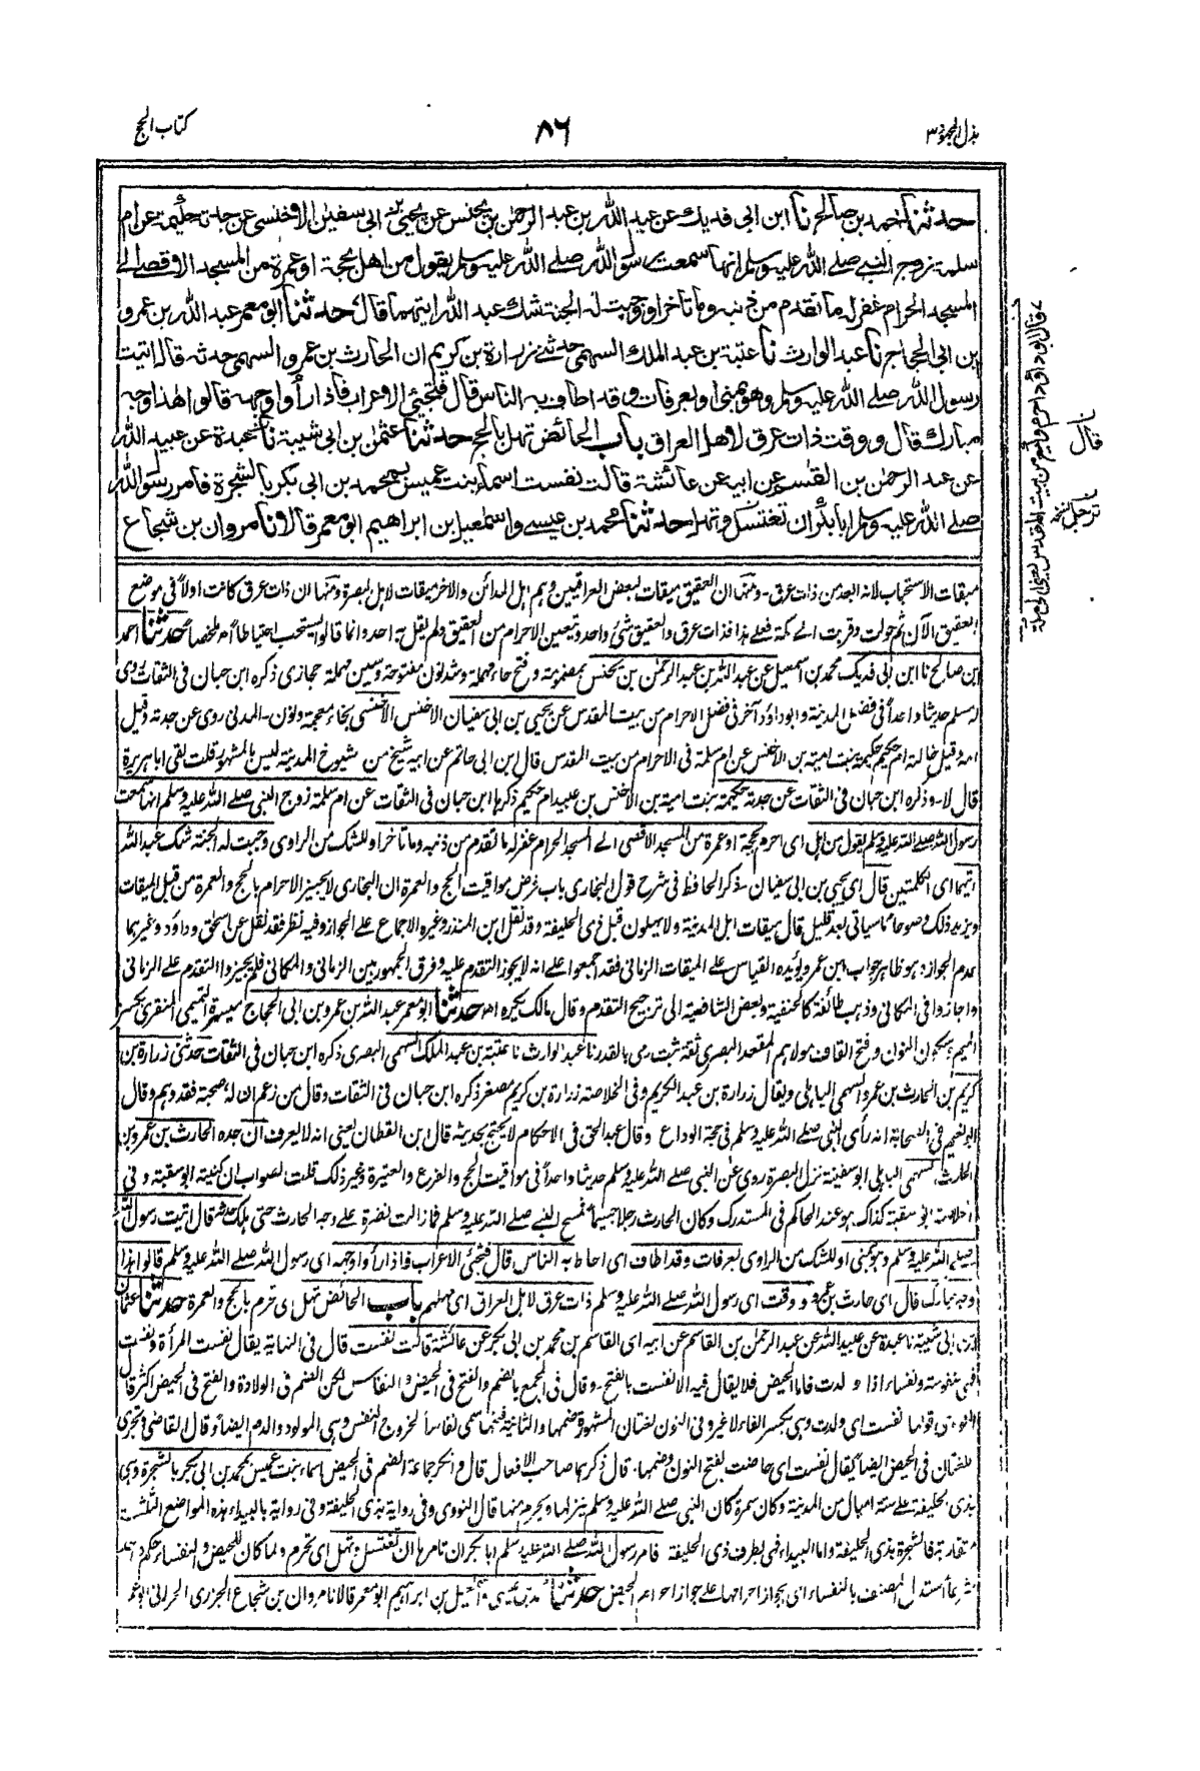 بذل المجهود ٣
٨٦
كتاب الحج
حدثنا احمد بن صالح نا ابن ابى فديك عن عبد الله بن عبد الرحمٰن بن يحنس عن يحيى بن ابى سفيٰن الاخنسى عن جدته حكيمة عن ام
سلمة زوج النبى صلى الله عليه وسلم انها سمعت رسول الله صلى الله عليه وسلم يقول من اهل بحجة او عمرة من المسجد الاقصى الى
المسجد الحرام غفر له ما تقدم من ذنبه وما تاخر او وجبت له الجنة شك عبد الله ايتهما قال حدثنا ابو معمر عبد الله بن عمرو
بن ابى الحجاج نا عبد الوارث نا عتبة بن عبد الملك السهمى حدثنى زرارة بن كريم ان الحارث بن عمرو السهمى حدثه قال اتيت
رسول الله صلى الله عليه وسلم وهو بمنى او بعرفات وقد اطاف به الناس قال فتجئ الاعراب فاذا رأوا وجهه قالوا هذا وجه
مبارك قال ووقت ذات عرق لاهل العراق باب الحائض تهل بالحج حدثنا عثمٰن بن ابى شيبة نا عبدة عن عبيد الله
عن عبد الرحمٰن بن القٰسم عن ابيه عن عائشة قالت نفست اسماء بنت عميس بمحمد بن ابى بكر بالشجرة فامر رسول الله
صلى الله عليه وسلم ابا بكر ان تغتسل وتهل حدثنا محمد بن عيسى واسمعيل بن ابراهيم ابو معمر قالا نا مروان بن شجاع
ميقات الاستحباب لانه ابعد من ذات عرق ۔ ومنها ان العقيق ميقات لبعض العراقيين وهم اهل المدائن والاخر ميقات لاهل البصرة ومنها ان ذات عرق كانت اولاً فى موضع
العقيق الآن ثم حولت وقربت الى مكة فعلى هذا فذات عرق والعقيق شئ واحد ويتعين الاحرام من العقيق ولم يقل به احد وانما قالوا يستحب احتياطاً اھ ملخصاً حدثنا احمد
ابن صالح نا ابن ابى فديك محمد بن اسمعيل عن عبد الله بن عبد الرحمٰن بن يحنس بمضمومة وفتح حاء مهملة وشدة نون مفتوحة وسين مهملة حجازى ذكره ابن حبان فى الثقات روى
له مسلم حديثا واحداً فى فضل المدينة وابو داؤد آخر فى فضل الاحرام من بيت المقدس عن يحيى بن ابى سفيان الاخنسى بخاء معجمة ونون ۔ المدنى روى عن جدته وقيل
امه وقيل خالته ام حكيم حكيمة بنت امية بن الاخنس عن ام سلمة فى الاحرام من بيت المقدس قال ابن ابى حاتم عن ابيه شيخ من شيوخ المدينة ليس بالمشهور قلت لقى ابا هريرة
قال لا ۔ وذكره ابن حبان فى الثقات عن جدته حكيمة بنت امية بن الاخنس بن عبيد ام حكيم ذكرها ابن حبان فى الثقات عن ام سلمة زوج النبى صلى الله عليه وسلم انها سمعت
رسول الله صلى الله عليه وسلم يقول من اهل اى احرم بحجة او عمرة من المسجد الاقصى الى المسجد الحرام غفر له ما تقدم من ذنبه وما تاخر او للشك من الراوى وجبت له الجنة شك عبد الله
ايتهما اى الكلمتين قال اى يحيى بن ابى سفيان ۔ ذكر الحافظ فى شرح قول البخارى باب فرض مواقيت الحج والعمرة ان البخارى لا يجيز الاحرام بالحج والعمرة من قبل الميقات
ويزيد ذلك وضوحا ما سياتى بعد قليل قال ميقات اهل المدينة ولا يهلون قبل ذى الحليفة وقد نقل ابن المنذر وغيره الاجماع على الجواز وفيه نظر فقد نقل عن اسحٰق وداؤد وغيرهما
عدم الجواز وهو ظاهر جواب ابن عمر ويؤيده القياس على الميقات الزمانى فقد اجمعوا على انه لا يجوز التقدم عليه وفرق الجمهور بين الزمانى والمكانى فلم يجيزوا التقدم على الزمانى
واجازوا فى المكانى وذهب طائفة كالحنفية وبعض الشافعية الى ترجيح التقدم وقال مالك يكره اھ حدثنا ابو معمر عبد الله بن عمرو بن ابى الحجاج ميسرة التميمى المنقرى بكسر
الميم وسكون النون وفتح القاف مولاهم المقعد البصرى ثقة ثبت رمى بالقدر نا عبد الوارث نا عتبة بن عبد الملك السهمى البصرى ذكره ابن حبان فى الثقات حدثنى زرارة بن
كريم بن الحارث بن عمرو السهمى الباهلى ويقال زرارة بن عبد الكريم وفى الخلاصة زرارة بن كريم مصغر ذكره ابن حبان فى الثقات وقال من زعم ان له صحبة فقد وهم وقال
ابو نعيم فى الصحابة انه رأى النبى صلى الله عليه وسلم فى حجة الوداع وقال عبد الحق فى الاحكام لا يحتج بحديثه قال ابن القطان يعنى انه لا يعرف ان جده الحارث بن عمرو بن
الحارث السهمى الباهلى ابو سفينة نزل البصرة روى عن النبى صلى الله عليه وسلم حديثا واحداً فى مواقيت الحج والفرع والعتيرة وغير ذلك قلت الصواب ان كنيته ابو سقبة وفى
الخلاصة ابو سقبة كذاك هو عند الحاكم فى المستدرك وكان الحارث رجلا جسيما فمسح النبى صلى الله عليه وسلم فما زالت نضرة على وجه الحارث حتى هلك حدثه قال اتيت رسول الله
صلى الله عليه وسلم وهو بمنى او للشك من الراوى بعرفات وقد اطاف اى احاط به الناس قال فتجئ الاعراب فاذا رأوا وجهه اى رسول الله صلى الله عليه وسلم قالوا هذا
وجه مبارك قال اى حارث بن عمرو ووقت اى رسول الله صلى الله عليه وسلم ذات عرق لاهل العراق اى مهلهم باب الحائض تهل اى تحرم بالحج والعمرة حدثنا عثمان
ابن ابى شيبة نا عبدة عن عبيد الله عن عبد الرحمٰن بن القاسم عن ابيه اى القاسم بن محمد بن ابى بكر عن عائشة قالت نفست قال فى النهاية يقال نفست المرأة ونفست
فهى منفوسة ونفساء اذا ولدت فاما الحيض فلا يقال فيه الا نفست بالفتح ۔ وقال فى المجمع بالضم والفتح فى الحيض والنفاس لكن الضم فى الولادة والفتح فى الحيض اكثر قال
النووى قولها نفست اى ولدت وهى بكسر الفاء لا غير وفى النون لغتان المشهورة ضمها والثانية فتحها سمى نفاساً لخروج النفس وهى المولود والدم ايضا قال القاضى وتجرى
اللغتان فى الحيض ايضا يقال نفست اى حاضت بفتح النون وضمها ۔ قال ذكرهما صاحب الافعال قال وانكر جماعة الضم فى الحيض اسماء بنت عميس بمحمد بن ابى بكر بالشجرة وهى
بذى الحليفة على ستة اميال من المدينة وكان سمرة كان النبى صلى الله عليه وسلم ينزلها ويحرم منها قال النووى وفى رواية بذى الحليفة وفى رواية بالبيداء هذه المواضع الثلثة
متقاربة فالشجرة بذى الحليفة واما البيداء فهى بطرف ذى الحليفة فامر رسول الله صلى الله عليه وسلم ابا بكر ان تامرها ان تغتسل وتهل اى تحرم ولما كان للحيض والنفساء حكم
شرعا استدل المصنف بالنفساء اى بجواز احرامها على جواز احرام الحيض حدثنا محمد بن عيسى واسمعيل بن ابراهيم ابو معمر قالا نا مروان بن شجاع الجزرى الحرانى
قال ابو داؤد احرم وكيع من بيت المقدس يعنى الى مكة
قال